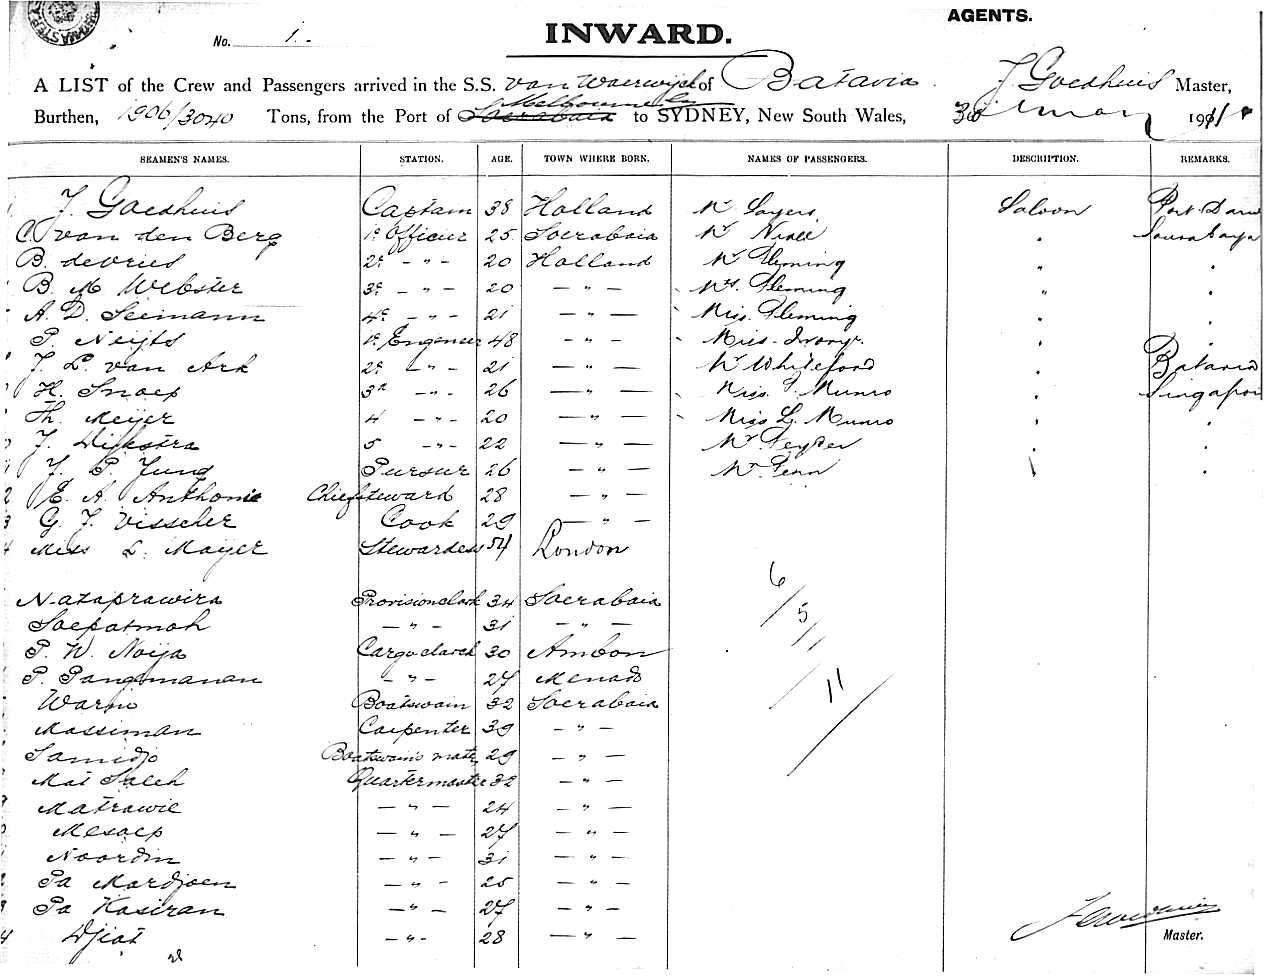 AGENTS.
No. 1.-
INWARD.
A LIST of the Crew and Passengers arrived in the S.S. van Waerwijck of Batavia. J Goedhuis Master,
Burthen, 1906/3040 Tons, from the Port of Soerabaia Melbourne to SYDNEY, New South Wales, 191
SEAMEN'S NAMES. STATION. AGE. TOWN WHERE BORN. NAMES OF PASSENGERS. DESCRIPTION. REMARKS.
J. Goedhuis Captain 38 Holland Mr Sayers Saloon Port Darw
C. van den Berg 1e Officier 25 Soerabaia Mr Niall " Sourabaya
B. deVries 2e - " - 20 Holland Mr Fleming " "
B. M Webster 3e - " - 20 - " - Mrs. Fleming " "
A. D. Seemann 4e - " - 21 - " - Miss. Fleming " "
P. Neijts 1e Engeneer 48 - " - Miss " "
J. L. van Ark 2e - " - 21 - " - Mr Whiteford " Batavia
H. Snoep 3e - " - 26 - " - Miss. Munro " Singapor
Th. Meijer 4 - " - 20 - " - Miss L. Munro " "
J. Dijkstra 5 - " - 22 - " - Mr " "
J. P. Jung Pursur 26 - " - Mr. Fenn "
E. A. Anthonie Chief steward 28 - " -
G. J. Visscher Cook 29 - " -
Miss L. Mayer Stewardess 54 London
6/5
Nataprawira Provisionclerk 34 Soerabaia
Soepatmoh - " - 31 - " -
P. W. Noija Cargoclerck 30 Ambon
P. Pangemanan - " - 27 Menado
11
Warno Boatswain 32 Soerabaia
Massiman Carpenter 39 - " -
Samidjo Boatswain's mate 29 - " -
Mat Saleh Quartermaster 32 - " -
Matrawie - " - 24 - " -
Mesoep - " - 27 - " -
Noordin - " - 31 - " -
Pa Mardjoen - " - 25 - " -
Pa Kasiran - " - 27 - " -
Djiat - " - 28 - " -
J Goedhuis
Master.